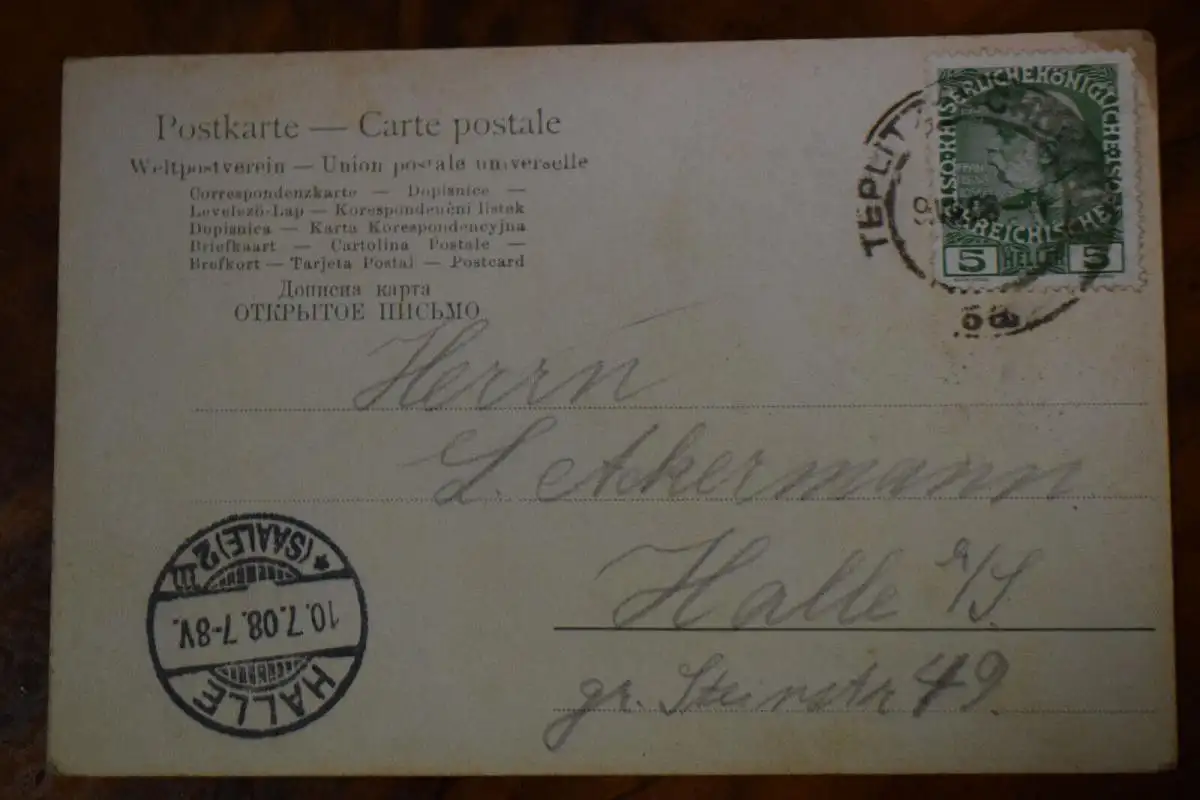 Postkarte — Carte postale
Weltpostverein — Union postale universelle
Correspondenzkarte — Dopisnice —
Levelező-Lap — Korespondenčni listek
Dopisnica — Karta Korespondencyjna
Briefkaart — Cartolina Postale —
Brefkort — Tarjeta Postal — Postcard
Дописна карта
ОТКРЫТОЕ ПИСЬМО
TEPLITZ
KAISERLICHEKÖNIGLICHE
ÖSTERREICHISCHE
5 HELLER 5
Herrn
L. Ackermann
Halle a/S.
gr. Steinstr 49.
HALLE
10.7.08.7-8V.
* (SAALE) 2 m